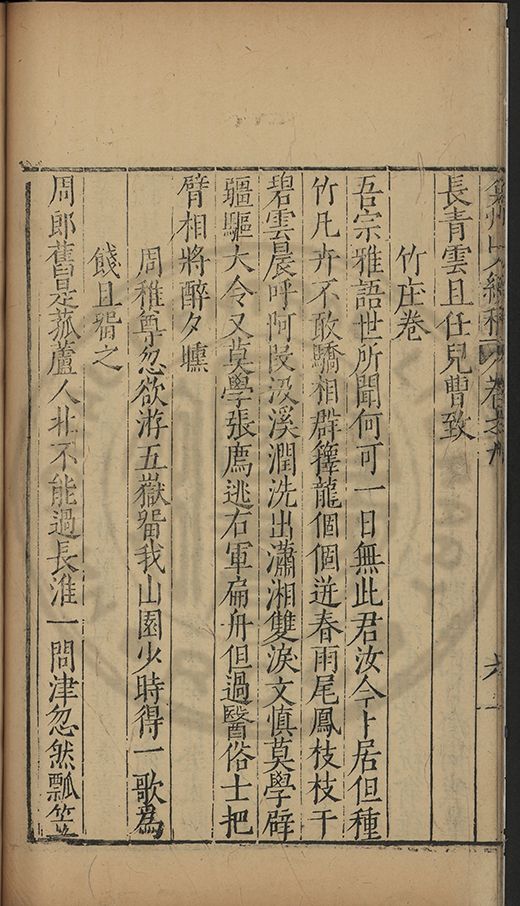 弇州山人續稿 卷之
長青雲且任兒曹致
竹庄卷
吾宗雅語世所聞何可一日無此君汝今卜居但種
竹凡卉不敢驕相群籜龍個個迸春雨尾鳳枝枝干
碧雲晨呼阿段汲溪潤洗出瀟湘雙淚文慎莫學辟
疆驅大令又莫學張廌逃右軍扁舟但過醫俗士把
臂相將醉夕曛
周稚尊忽欲游五嶽畱我山園少時得一歌為
餞且畱之
周郎舊是菰蘆人北不能過長淮一問津忽然瓢笠